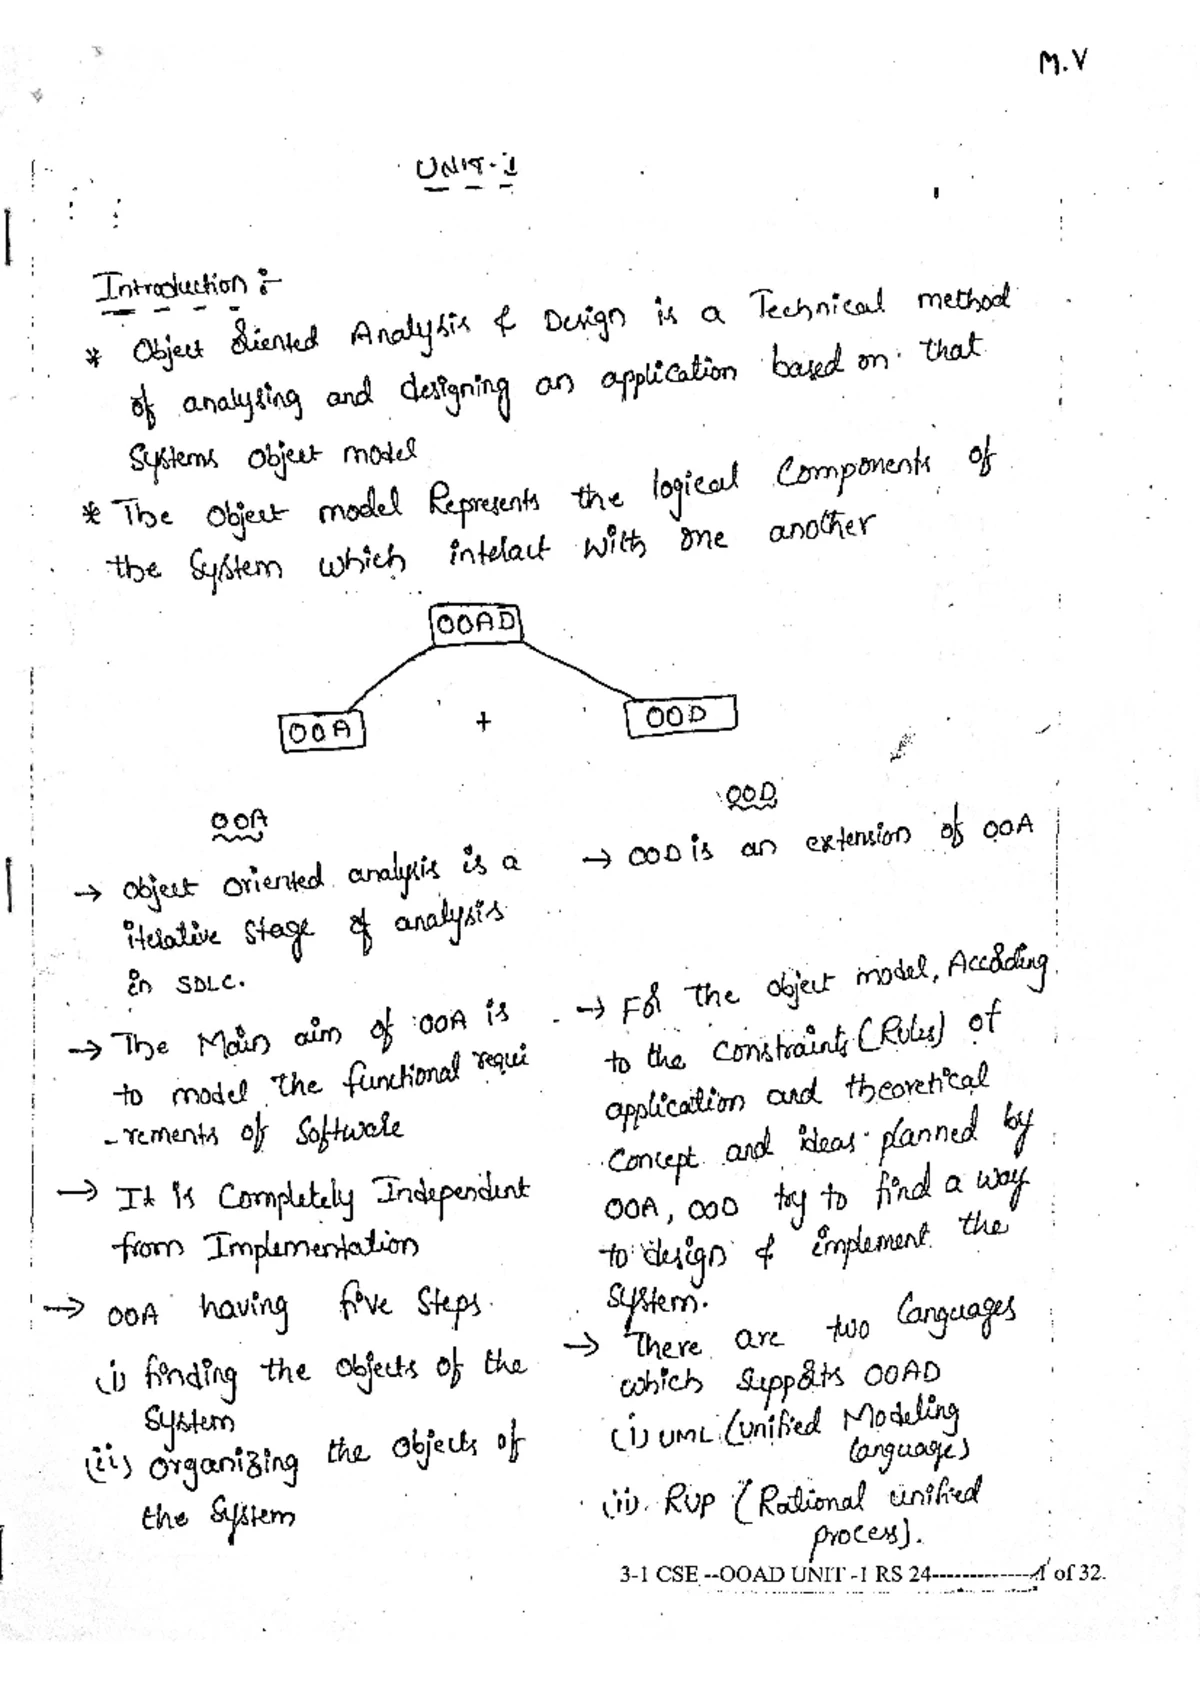 M.V
UNIT-I
Introduction :-
* Object Oriented Analysis & Design is a Technical method
of analysing and designing an application based on that
Systems object model
* The Object model Represents the logical Components of
the System which interact with one another
OOAD
OOA + OOD
OOA
→ Object oriented analysis is a
iterative stage of analysis
in SDLC.
→ The Main aim of OOA is
to model the functional requi
-rements of Software
→ It is Completely Independent
from Implementation
→ OOA having five Steps.
(i) finding the objects of the
System
(ii) organizing the objects of
the System
OOD
→ OOD is an extension of OOA
→ For the object model, According
to the constraints (Rules) of
application and theoretical
Concept and ideas planned by
OOA, OOD try to find a way
to design & implement the
System.
→ There are two languages
which supports OOAD
(i) UML (unified Modeling
languages)
(ii). RUP (Rational unified
process).
3-1 CSE --OOAD UNIT -1 RS 24--------------1 of 32.